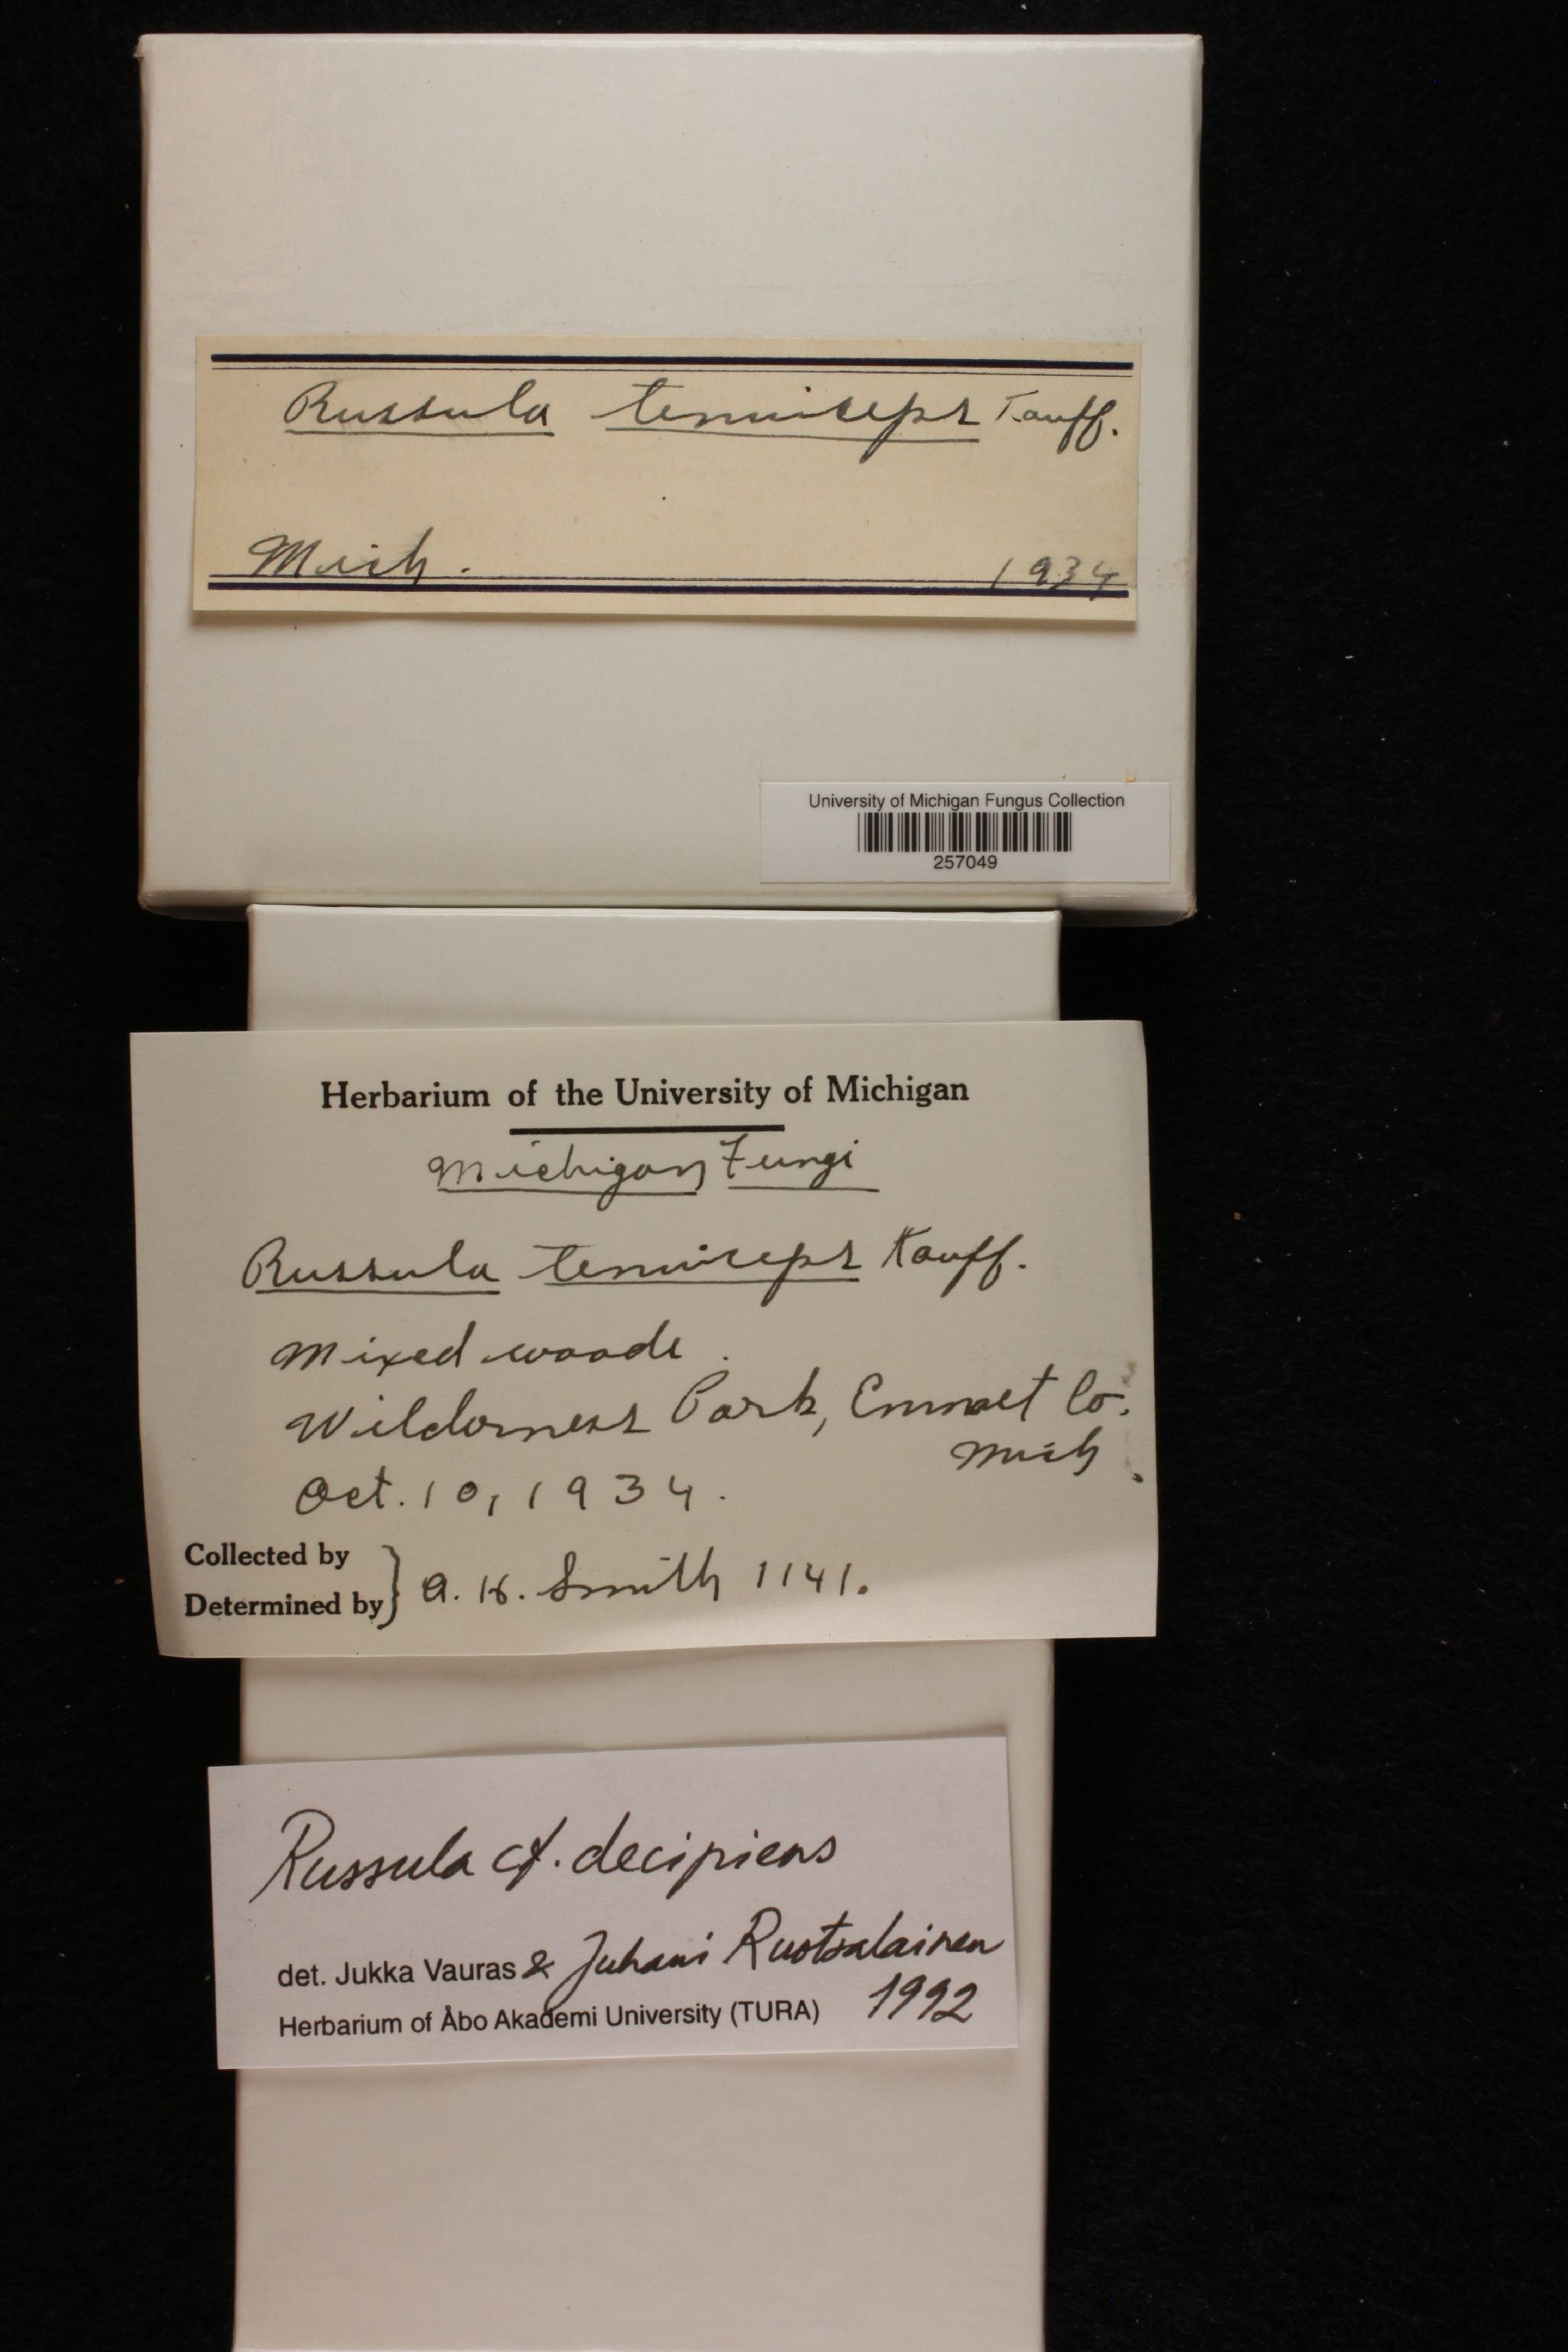 Russula tenuiceps Kauff.
Mich. 1934
University of Michigan Fungus Collection
257049
Herbarium of the University of Michigan
Michigan Fungi
Russula tenuiceps Kauff.
Mixed woods.
Wilderness Park, Emmet Co.
Mich.
Oct. 10, 1934.
Collected by
Determined by } A. H. Smith 1141.
Russula cf. decipiens
det. Jukka Vauras & Juhani Ruotsalainen
Herbarium of Åbo Akademi University (TURA) 1992